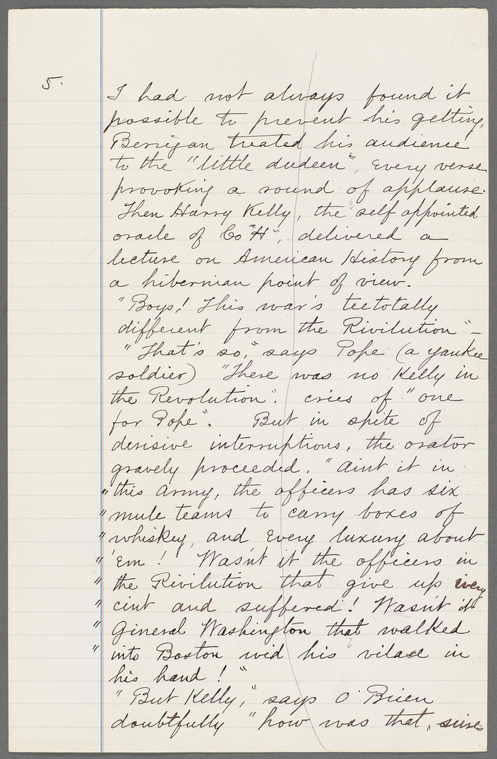 5.
I had not always found it
possible to prevent his getting,
Berrigan treated his audience
to the "little dudeen", every verse
provoking a round of applause.
Then Harry Kelly, the self appointed
oracle of Co "H", delivered a
lecture on American History from
a hibernian point of view.
"Boys! This war's teetotally
different from the Rivilution" —
"That's so," says Pope (a yankee
soldier) "There was no Kelly in
the Revolution". cries of "one
for Pope". But in spite of
derisive interruptions, the orator
gravely proceeded. "aint it in
"this army, the officers has six
"mule teams to carry boxes of
"whiskey, and every luxury about
'em! Wasn't it the officers in
"the Rivilution that give up every
"cint and suffered! Wasn't it
"Gineral Washington that walked
"into Boston wid his vilace in
his hand!"
"But Kelly," says O'Brien
doubtfully "how was that, sure